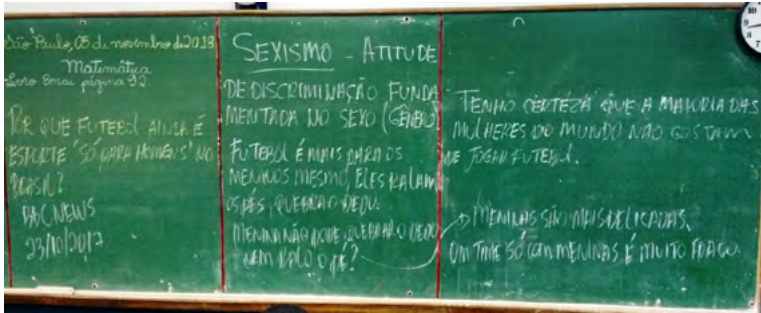 São Paulo, 05 de novembro de 2018
Matemática
Livro Emai página 92
POR QUE FUTEBOL AINDA É
ESPORTE 'SÓ PARA HOMENS' NO
BRASIL?
BBC NEWS
23/10/2017
SEXISMO - ATITUDE
DE DISCRIMINAÇÃO FUNDA
MENTADA NO SEXO (GÊNERO)
FUTEBOL É MAIS PARA OS
MENINOS MESMO, ELES RALAM
OS PÉS, QUEBRA O DEDO.
MENINA NÃO PODE, QUEBRAR O DEDO
NEM RALO O PÉ?
TENHO CERTEZA QUE A MAIORIA DAS
MULHERES DO MUNDO NÃO GOSTAM
DE JOGAR FUTEBOL.
→ MENINAS SÃO MAIS DELICADAS.
UM TIME SÓ COM MENINAS É MUITO FRACO.
10
9
8
7